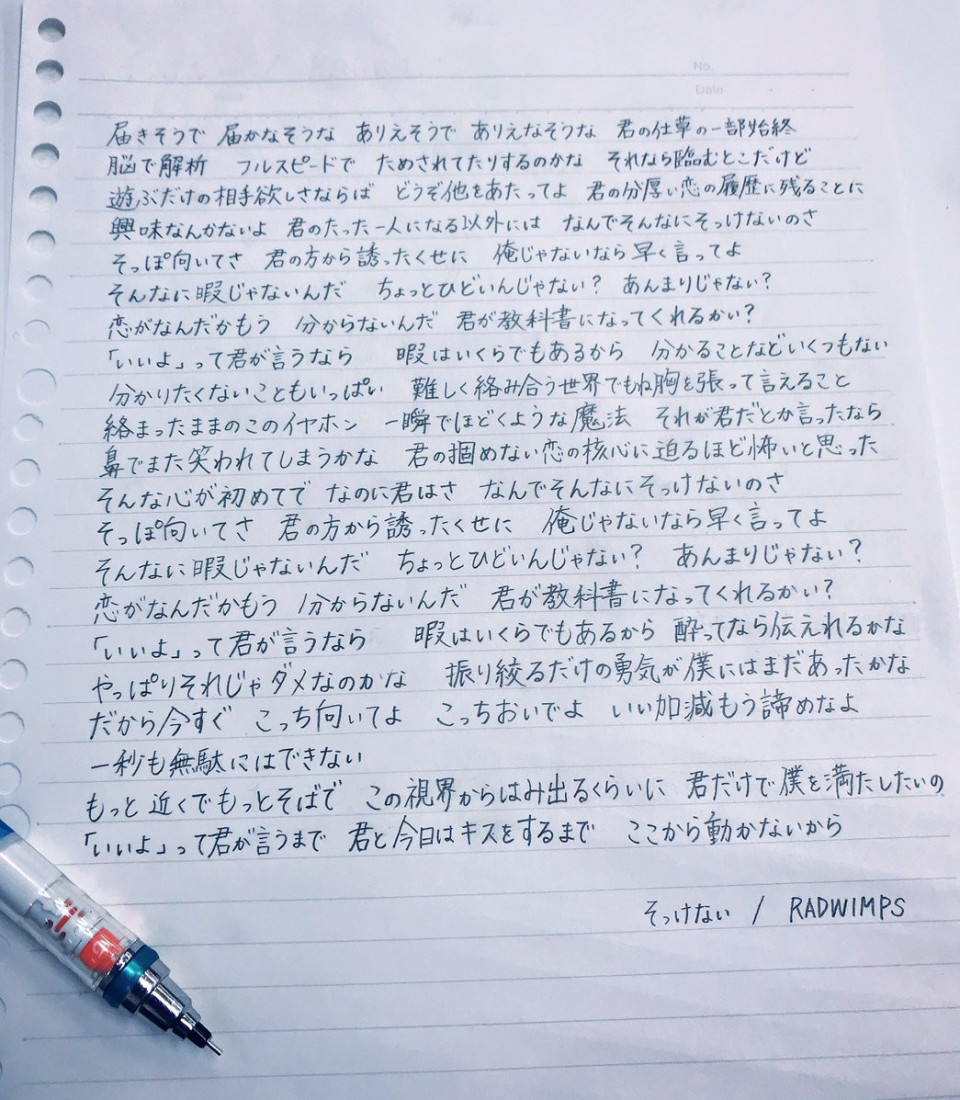 No.
Date
届きそうで 届かなそうな ありえそうで ありえなそうな 君の仕草の一部始終
脳で解析 フルスピードで ためされてたりするのかな それなら臨むとこだけど
遊ぶだけの相手欲しさならば どうぞ他をあたってよ 君の分厚い恋の履歴に残ることに
興味なんかないよ 君のたった一人になる以外には なんでそんなにそっけないのさ
そっぽ向いてさ 君の方から誘ったくせに 俺じゃないなら早く言ってよ
そんなに暇じゃないんだ ちょっとひどいんじゃない? あんまりじゃない?
恋がなんだかもう 分からないんだ 君が教科書になってくれるかい?
「いいよ」って君が言うなら 暇はいくらでもあるから 分かることなどいくつもない
分かりたくないこともいっぱい 難しく絡み合う世界でもね胸を張って言えること
絡まったままのこのイヤホン 一瞬でほどくような魔法 それが君だとか言ったなら
鼻でまた笑われてしまうかな 君の掴めない恋の核心に迫るほど怖いと思った
そんな心が初めてで なのに君はさ なんでそんなにそっけないのさ
そっぽ向いてさ 君の方から誘ったくせに 俺じゃないなら早く言ってよ
そんなに暇じゃないんだ ちょっとひどいんじゃない? あんまりじゃない?
恋がなんだかもう 分からないんだ 君が教科書になってくれるかい?
「いいよ」って君が言うなら 暇はいくらでもあるから 酔ってなら伝えれるかな
やっぱりそれじゃダメなのかな 振り絞るだけの勇気が僕にはまだあったかな
だから今すぐ こっち向いてよ こっちおいでよ いい加減もう諦めなよ
一秒も無駄にはできない
もっと近くでもっとそばで この視界からはみ出るくらいに 君だけで僕を満たしたいの
「いいよ」って君が言うまで 君と今日はキスをするまで ここから動かないから
そっけない / RADWIMPS